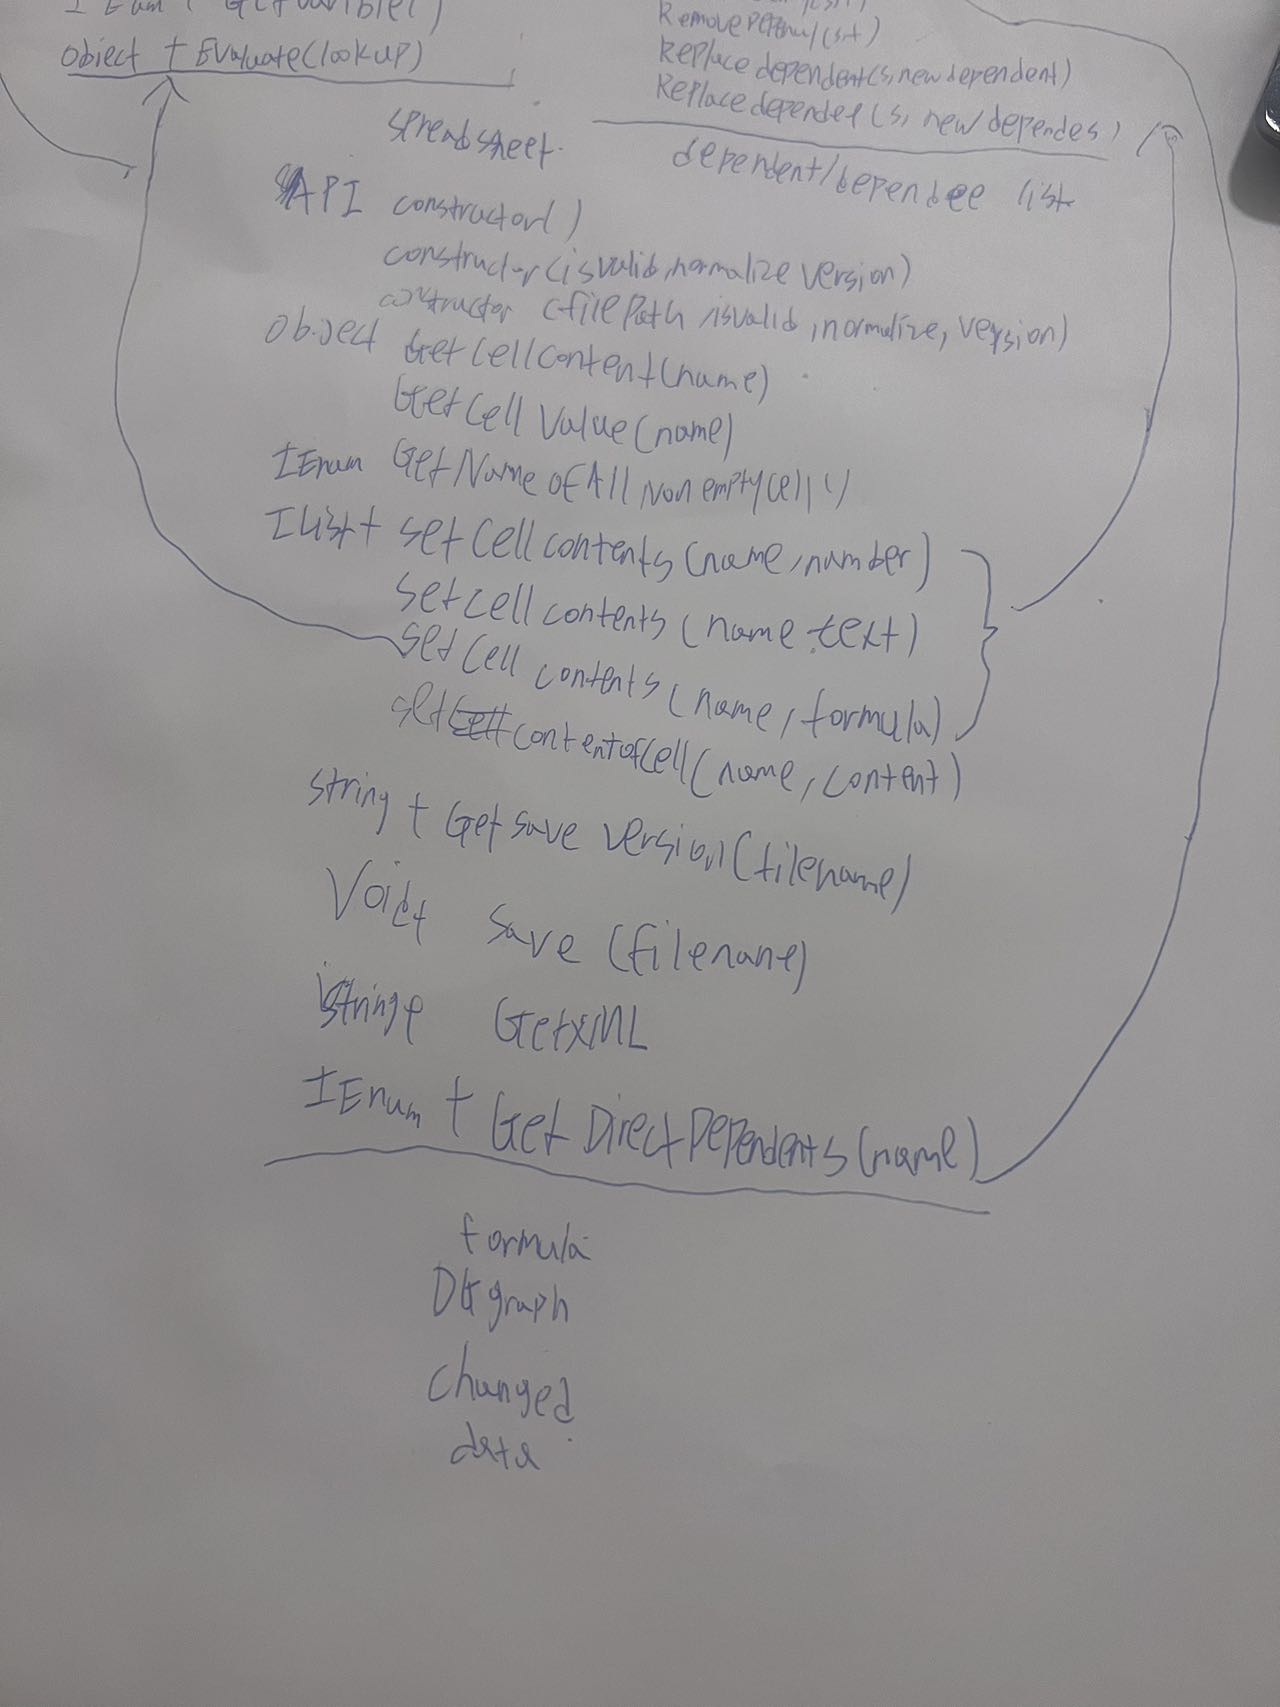 IEnum + GetVarible()
object + Evaluate(lookup)
Remove
Replace dependent(s, new dependent)
Replace dependee(s, new dependes)
dependent/dependee list
spreadsheet.
API constructor()
constructor(isvalid, normalize version)
constructor (filePath, isvalid, normalize, version)
Object Get Cell Content(name)
Get Cell Value(name)
IEnum Get Name of All Non empty cell()
IList + set Cell contents (name, number)
set cell contents (name. text)
set Cell contents (name, formula)
set contentofCell(name, content)
string + Get save version(filename)
Void + save (filename)
string + GetXML
IEnum + Get Direct Dependents(name)
formula
DG graph
changed
data